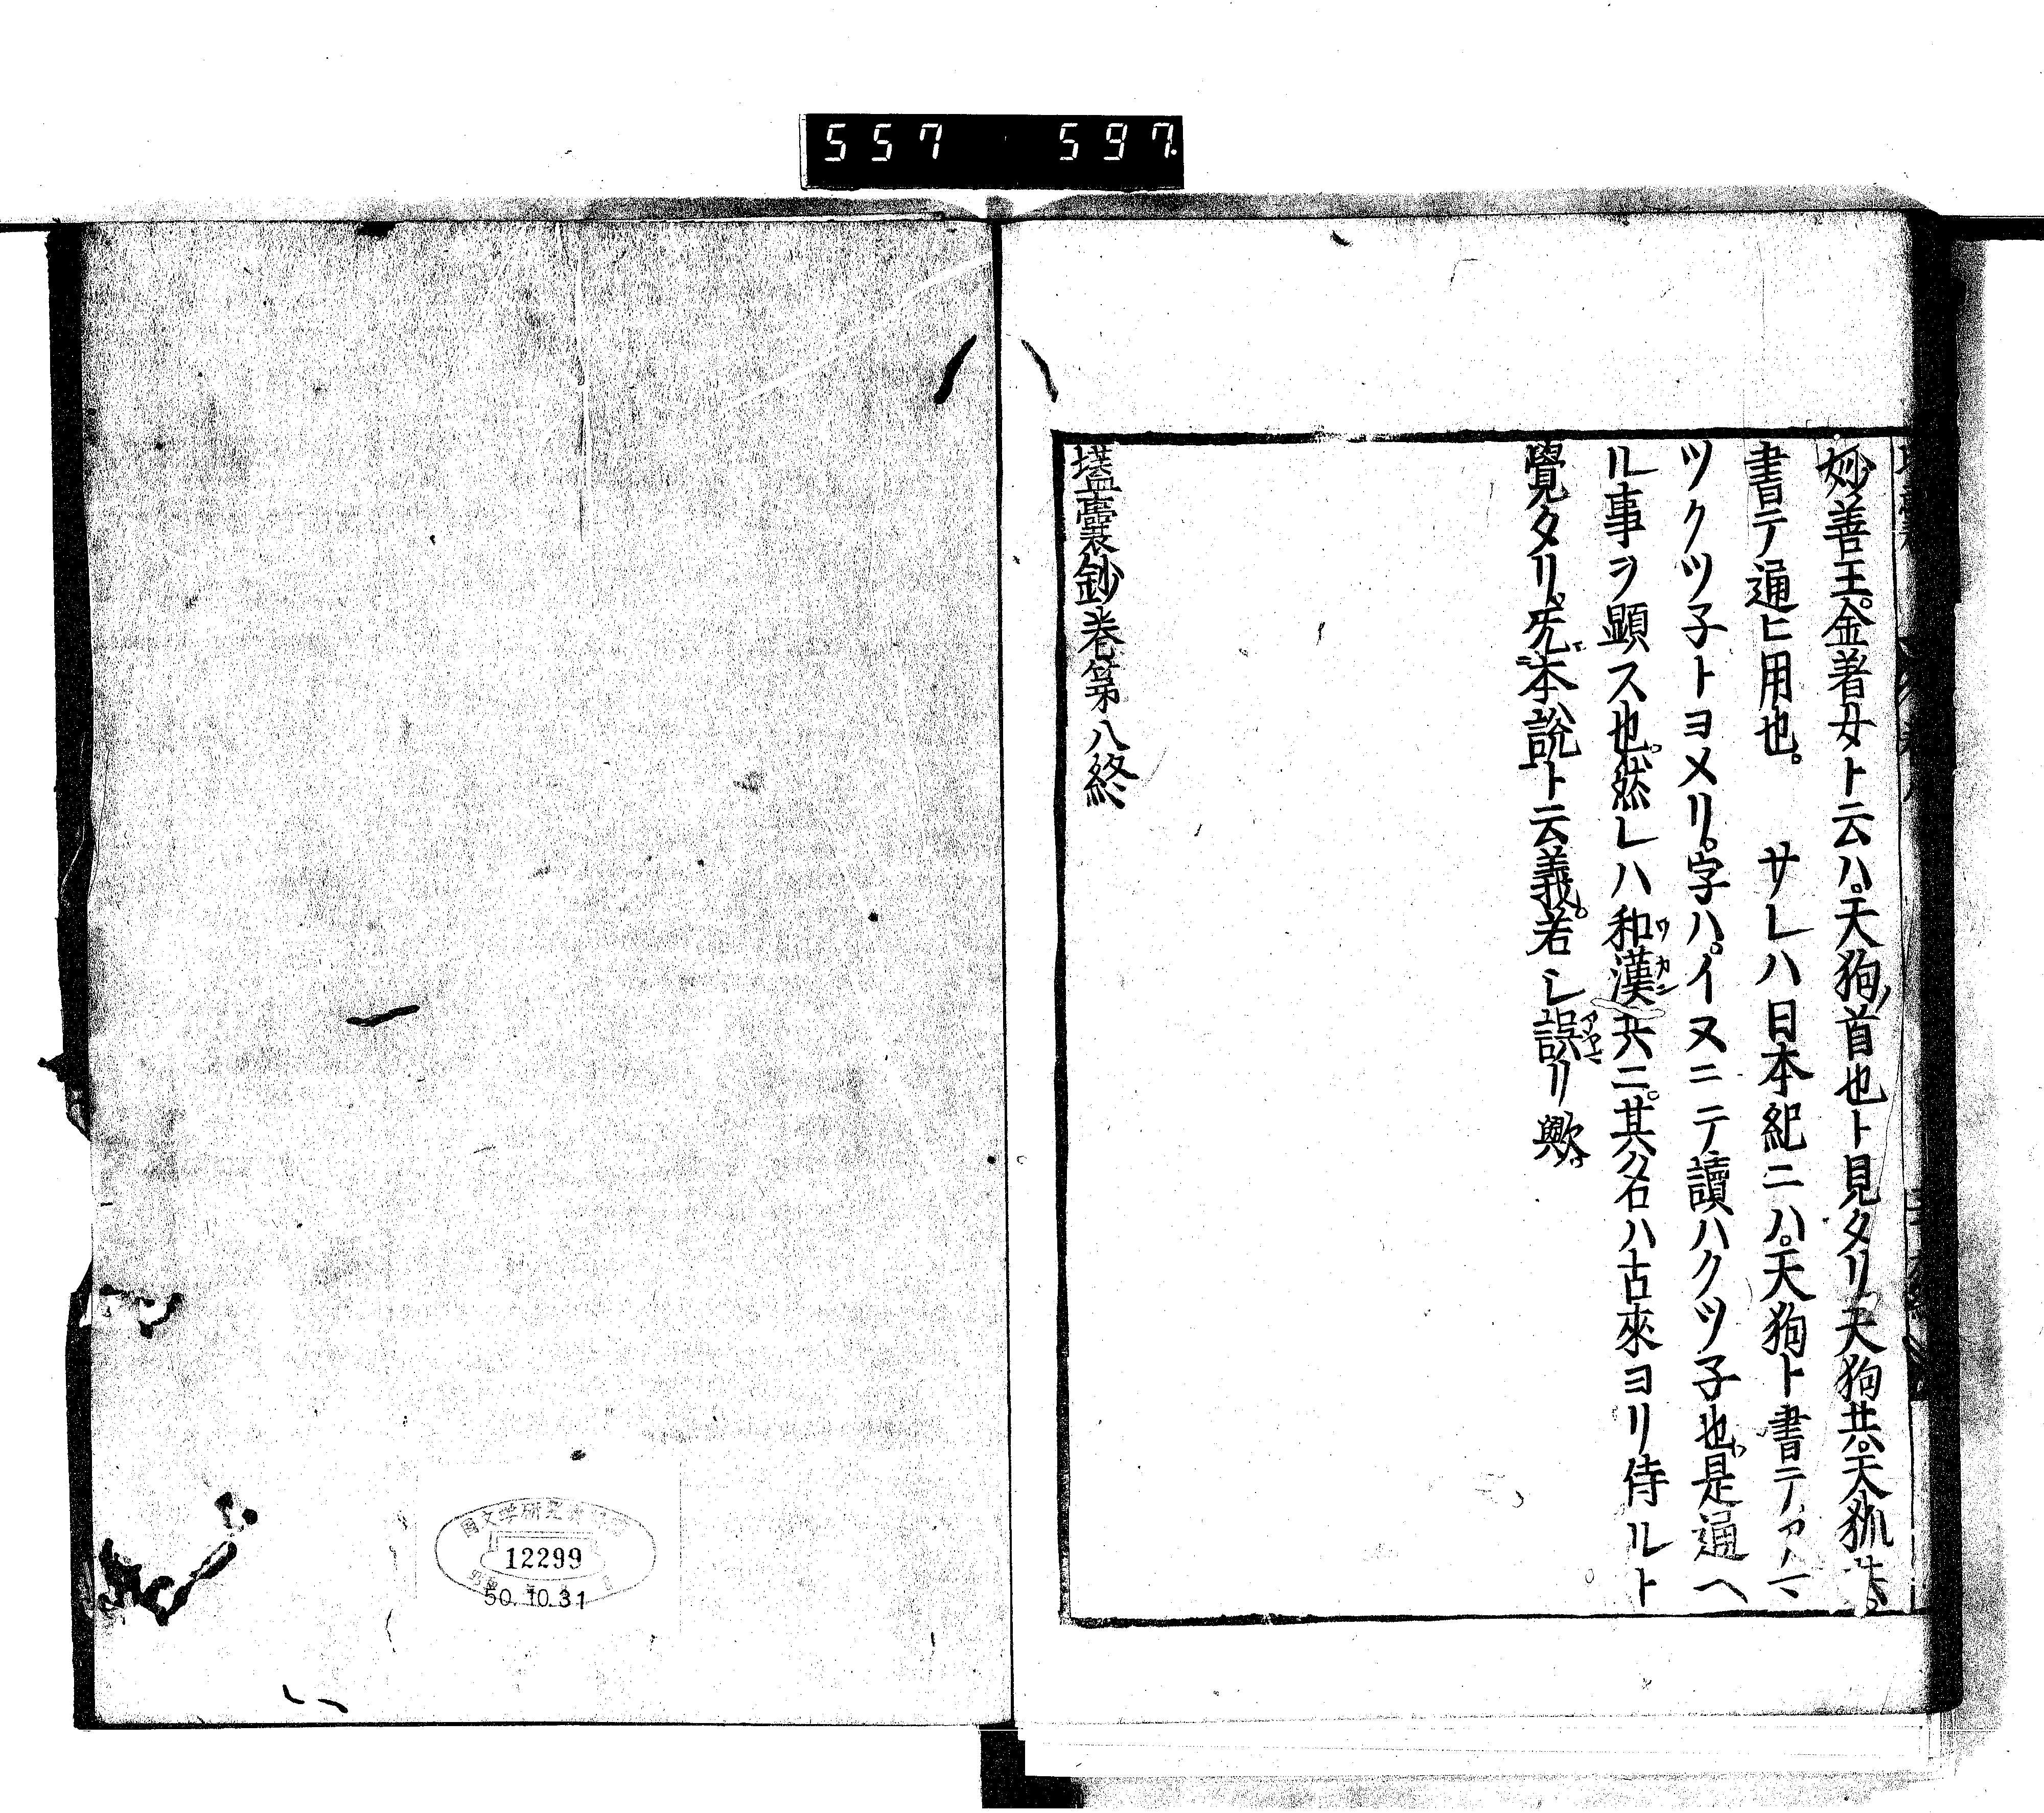 557 597
妙善王。金著女ト云ハ。天狗ノ首也ト見タリ天狗共。天狐共。
書テ通ヒ用也。　サレハ日本紀ニハ。天狗ト書テ。アマ
ツクツ子トヨメリ。字ハ。イヌニテ讀ハクツ子也。是通ヘ
ル事ヲ顯ス也。然レハ和漢共ニ。其名ハ古來ヨリ侍ルト
ワカン
覺タリ。旡本説ト云義。若シ誤リ歟。
壒囊鈔巻第八終
12299
50.10.31